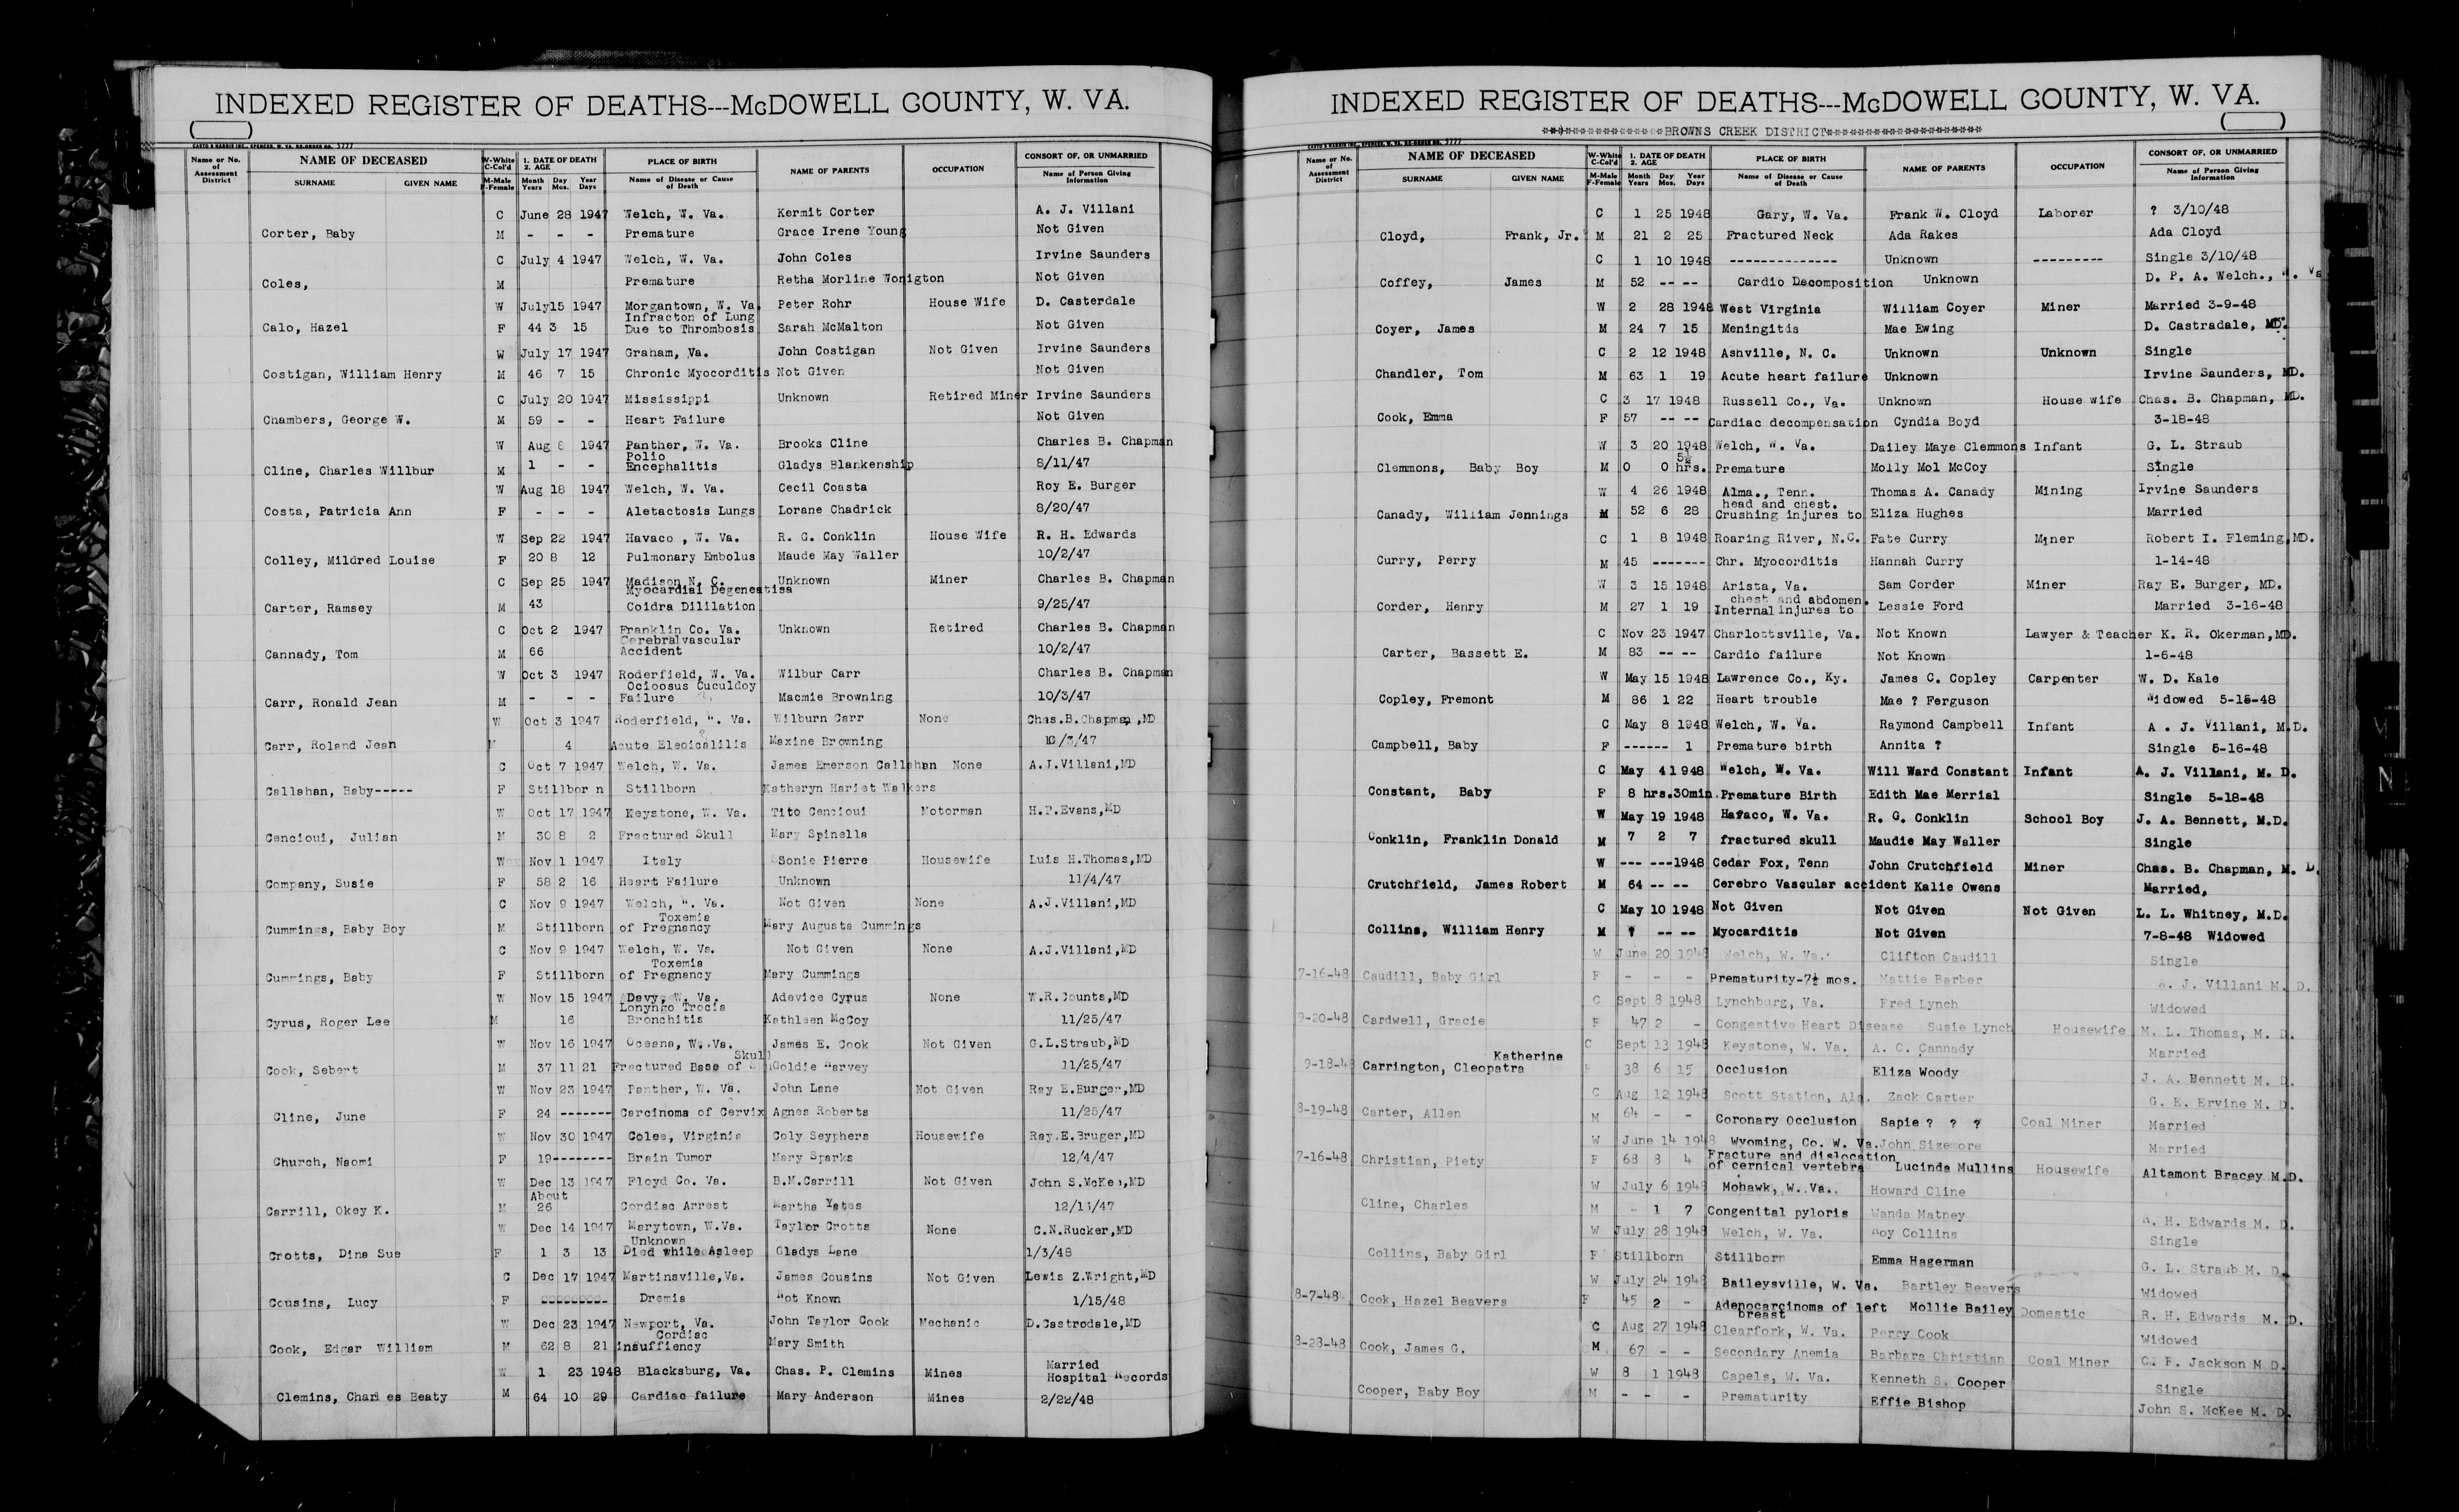 INDEXED REGISTER OF DEATHS---McDOWELL COUNTY, W. VA.
CASTO & HARRIS INC., SPENCER, W. VA. RE-ORDER NO. 5777
Name or No. of Assessment District
NAME OF DECEASED
SURNAME GIVEN NAME
W-White C-Col'd
M-Male F-Female
1. DATE OF DEATH 2. AGE
Month Years Day Mos. Year Days
PLACE OF BIRTH
Name of Disease or Cause of Death
NAME OF PARENTS
OCCUPATION
CONSORT OF, OR UNMARRIED
Name of Person Giving Information
C June 28 1947 Welch, W. Va. Kermit Corter A. J. Villani
Corter, Baby M - - - Premature Grace Irene Young Not Given
C July 4 1947 Welch, W. Va. John Coles Irvine Saunders
Coles, M Premature Retha Morline Wonigton Not Given
W July15 1947 Morgantown, W. Va. Peter Rohr House Wife D. Casterdale
Infracton of Lung
Calo, Hazel F 44 3 15 Due to Thrombosis Sarah McMalton Not Given
W July 17 1947 Graham, Va. John Costigan Not Given Irvine Saunders
Costigan, William Henry M 46 7 15 Chronic Myocorditis Not Given Not Given
C July 20 1947 Mississippi Unknown Retired Miner Irvine Saunders
Chambers, George W. M 59 - - Heart Failure Not Given
W Aug 8 1947 Panther, W. Va. Brooks Cline Charles B. Chapman
Polio
Cline, Charles Willbur M 1 - - Encephalitis Gladys Blankenship 8/11/47
W Aug 18 1947 Welch, W. Va. Cecil Coasta Roy E. Burger
Costa, Patricia Ann F - - - Aletactosis Lungs Lorane Chadrick 8/20/47
W Sep 22 1947 Havaco , W. Va. R. G. Conklin House Wife R. H. Edwards
Colley, Mildred Louise F 20 8 12 Pulmonary Embolus Maude May Waller 10/2/47
C Sep 25 1947 Madison N. C. Unknown Miner Charles B. Chapman
Myocardial Degeneatisa
Carter, Ramsey M 43 Coidra Dililation 9/25/47
C Oct 2 1947 Franklin Co. Va. Unknown Retired Charles B. Chapman
Cerebralvascular
Cannady, Tom M 66 Accident 10/2/47
W Oct 3 1947 Roderfield, W. Va. Wilbur Carr Charles B. Chapman
Ocioosus Cuculdoy
Carr, Ronald Jean M - - - Failure Macmie Browning 10/3/47
W Oct 3 1947 Roderfield, W. Va. Wilburn Carr None Chas.B.Chapman,MD
Carr, Roland Jean M 4 Acute Eleoicalilis Maxine Browning 10/3/47
C Oct 7 1947 Welch, W. Va. James Emerson Callahan None A.J.Villani,MD
Callahan, Baby----- F Stillbor n Stillborn Katheryn Hariet Walkers
W Oct 17 1947 Keystone, W. Va. Tito Cencioui Motorman H.P.Evans,MD
Cencioui, Julian M 30 8 2 Fractured Skull Mary Spinella
W Nov 1 1947 Italy Sonie Pierre Housewife Luis H.Thomas,MD
Company, Susie F 58 2 16 Heart Failure Unknown 11/4/47
C Nov 9 1947 Welch, W. Va. Not Given None A.J.Villani,MD
Toxemia
Cummings, Baby Boy M Stillborn of Pregnancy Mary Augusta Cummings
C Nov 9 1947 Welch, W. Va. Not Given None A.J.Villani,MD
Toxemia
Cummings, Baby F Stillborn of Pregnancy Mary Cummings
W Nov 15 1947 Davy, W. Va. Adevice Cyrus None W.R.Counts,MD
Lonyngo Trocia
Cyrus, Roger Lee M 16 Bronchitis Kathleen McCoy 11/25/47
W Nov 16 1947 Oceana, W. Va. James E. Cook Not Given G.L.Straub,MD
Skull
Cook, Sebert M 37 11 21 Fractured Base of Goldie Harvey 11/25/47
W Nov 23 1947 Panther, W. Va. John Lane Not Given Ray E.Burger,MD
Cline, June F 24 ------- Carcinoma of Cervix Agnes Roberts 11/25/47
W Nov 30 1947 Colee, Virginia Coly Seyphers Housewife Ray.E.Bruger,MD
Church, Naomi F 19-------- Brain Tumor Mary Sparks 12/4/47
W Dec 13 1947 Floyd Co. Va. B.M.Carrill Not Given John S.McKee,MD
About
Carrill, Okey K. M 26 Cordiac Arrest Martha Yates
W Dec 14 1947 Marytown, W.Va. Taylor Crotts None C.N.Rucker,MD
Unknown
Crotts, Dina Sue F 1 3 13 Died while Asleep Gladys Lane 1/3/48
C Dec 17 1947 Martinsville,Va. James Cousins Not Given Lewis Z.Wright,MD
Cousins, Lucy F --------- Dremia Not Known 1/15/48
W Dec 23 1947 Newport, Va. John Taylor Cook Mechanic D.Castrodale,MD
Cordiac
Cook, Edgar William M 62 8 21 insuffiency Mary Smith
W 1 23 1948 Blacksburg, Va. Chas. P. Clemins Mines Married
Hospital Records
Clemins, Charl es Beaty M 64 10 29 Cardiac failure Mary Anderson Mines 2/22/48
INDEXED REGISTER OF DEATHS---McDOWELL COUNTY, W. VA.
BROWNS CREEK DISTRICT
CASTO & HARRIS INC., SPENCER, W. VA. RE-ORDER NO. 5777
Name or No. of Assessment District
NAME OF DECEASED
SURNAME GIVEN NAME
W-White C-Col'd
M-Male F-Female
1. DATE OF DEATH 2. AGE
Month Years Day Mos. Year Days
PLACE OF BIRTH
Name of Disease or Cause of Death
NAME OF PARENTS
OCCUPATION
CONSORT OF, OR UNMARRIED
Name of Person Giving Information
C 1 25 1948 Gary, W. Va. Frank W. Cloyd Laborer ? 3/10/48
Cloyd, Frank, Jr. M 21 2 25 Fractured Neck Ada Rakes Ada Cloyd
C 1 10 1948 -------------- Unknown --------- Single 3/10/48
Coffey, James M 52 -- -- Cardio Decomposition Unknown D. P. A. Welch., W. Va
W 2 28 1948 West Virginia William Coyer Miner Married 3-9-48
Coyer, James M 24 7 15 Meningitis Mae Ewing D. Castradale, MD.
C 2 12 1948 Ashville, N. C. Unknown Unknown Single
Chandler, Tom M 63 1 19 Acute heart failure Unknown Irvine Saunders, MD.
C 3 17 1948 Russell Co., Va. Unknown House wife Chas. B. Chapman, MD.
Cook, Emma F 57 -- -- Cardiac decompensation Cyndia Boyd 3-18-48
W 3 20 1948 Welch, W. Va. Dailey Maye Clemmons Infant G. L. Straub
5½
Clemmons, Baby Boy M 0 0 hrs. Premature Molly Mol McCoy Single
W 4 26 1948 Alma., Tenn. Thomas A. Canady Mining Irvine Saunders
head and chest.
Canady, William Jennings M 52 6 28 Crushing injures to Eliza Hughes Married
C 1 8 1948 Roaring River, N.C. Fate Curry Miner Robert I. Fleming,MD.
Curry, Perry M 45 ------- Chr. Myocorditis Hannah Curry 1-14-48
W 3 15 1948 Arista, Va. Sam Corder Miner Ray E. Burger, MD.
chest and abdomen.
Corder, Henry M 27 1 19 Internal injures to Lessie Ford Married 3-16-48
C Nov 23 1947 Charlottsville, Va. Not Known Lawyer & Teacher K. R. Okerman,MD.
Carter, Bassett E. M 83 -- -- Cardio failure Not Known 1-6-48
W May 15 1948 Lawrence Co., Ky. James C. Copley Carpenter W. D. Kale
Copley, Fremont M 86 1 22 Heart trouble Mae ? Ferguson Widowed 5-15-48
C May 8 1948 Welch, W. Va. Raymond Campbell Infant A . J. Villani, M.D.
Campbell, Baby F ------ 1 Premature birth Annita ? Single 5-16-48
C May 4 1948 Welch, W. Va. Will Ward Constant Infant A. J. Villani, M. D.
Constant, Baby F 8 hrs.30min. Premature Birth Edith Mae Merrial Single 5-18-48
W May 19 1948 Havaco, W. Va. R. G. Conklin School Boy J. A. Bennett, M.D.
Conklin, Franklin Donald M 7 2 7 fractured skull Maudie May Waller Single
W --- ---1948 Cedar Fox, Tenn John Crutchfield Miner Chas. B. Chapman, M. D.
Crutchfield, James Robert M 64 -- -- Cerebro Vascular accident Kalie Owens Married,
C May 10 1948 Not Given Not Given Not Given L. L. Whitney, M.D.
Collins, William Henry M ? -- -- Myocarditis Not Given 7-8-48 Widowed
W June 20 1948 Welch, W. Va. Clifton Caudill Single
7-16-48 Caudill, Baby Girl F - - - Prematurity-7½ mos. Mattie Barber A. J. Villani M. D.
C Sept 8 1948 Lynchburg, Va. Fred Lynch Widowed
9-20-48 Cardwell, Gracie F 47 2 - Congestive Heart Disease Susie Lynch Housewife M. L. Thomas, M. D.
C Sept 13 1948 Keystone, W. Va. A. C. Cannady Married
Katherine
9-18-4 Carrington, Cleopatra F 38 6 15 Occlusion Eliza Woody J. A. Bennett M. D.
C Aug 12 1948 Scott Station, Ala. Zack Carter G. E. Ervine M. D.
8-19-48 Carter, Allen M 64 - - Coronary Occlusion Sapie ? ? ? Coal Miner Married
W June 14 1948 Wyoming, Co. W. Va. John Sizemore Married
Fracture and dislocation
7-16-48 Christian, Piety F 68 8 4 of cernical vertebra Lucinda Mullins Housewife Altamont Bracey M.D.
W July 6 1948 Mohawk, W. Va. Howard Cline
Cline, Charles M - 1 7 Congenital pyloris Wanda Matney R. H. Edwards M. D.
W July 28 1948 Welch, W. Va. Roy Collins Single
Collins, Baby Girl F Stillborn Stillborn Emma Hagerman G. L. Straub M. D.
W July 24 1948 Baileysville, W. Va. Bartley Beavers Widowed
8-7-48 Cook, Hazel Beavers F 45 2 - Adenocarcinoma of left Mollie Bailey Domestic R. H. Edwards M. D.
breast
C Aug 27 1948 Clearfork, W. Va. Perry Cook Widowed
8-28-48 Cook, James G. M 67 - - Secondary Anemia Barbara Christian Coal Miner C. F. Jackson M D.
W 8 1 1948 Capels, W. Va. Kenneth S. Cooper Single
Cooper, Baby Boy M - - - Prematurity Effie Bishop John S. McKee M. D.